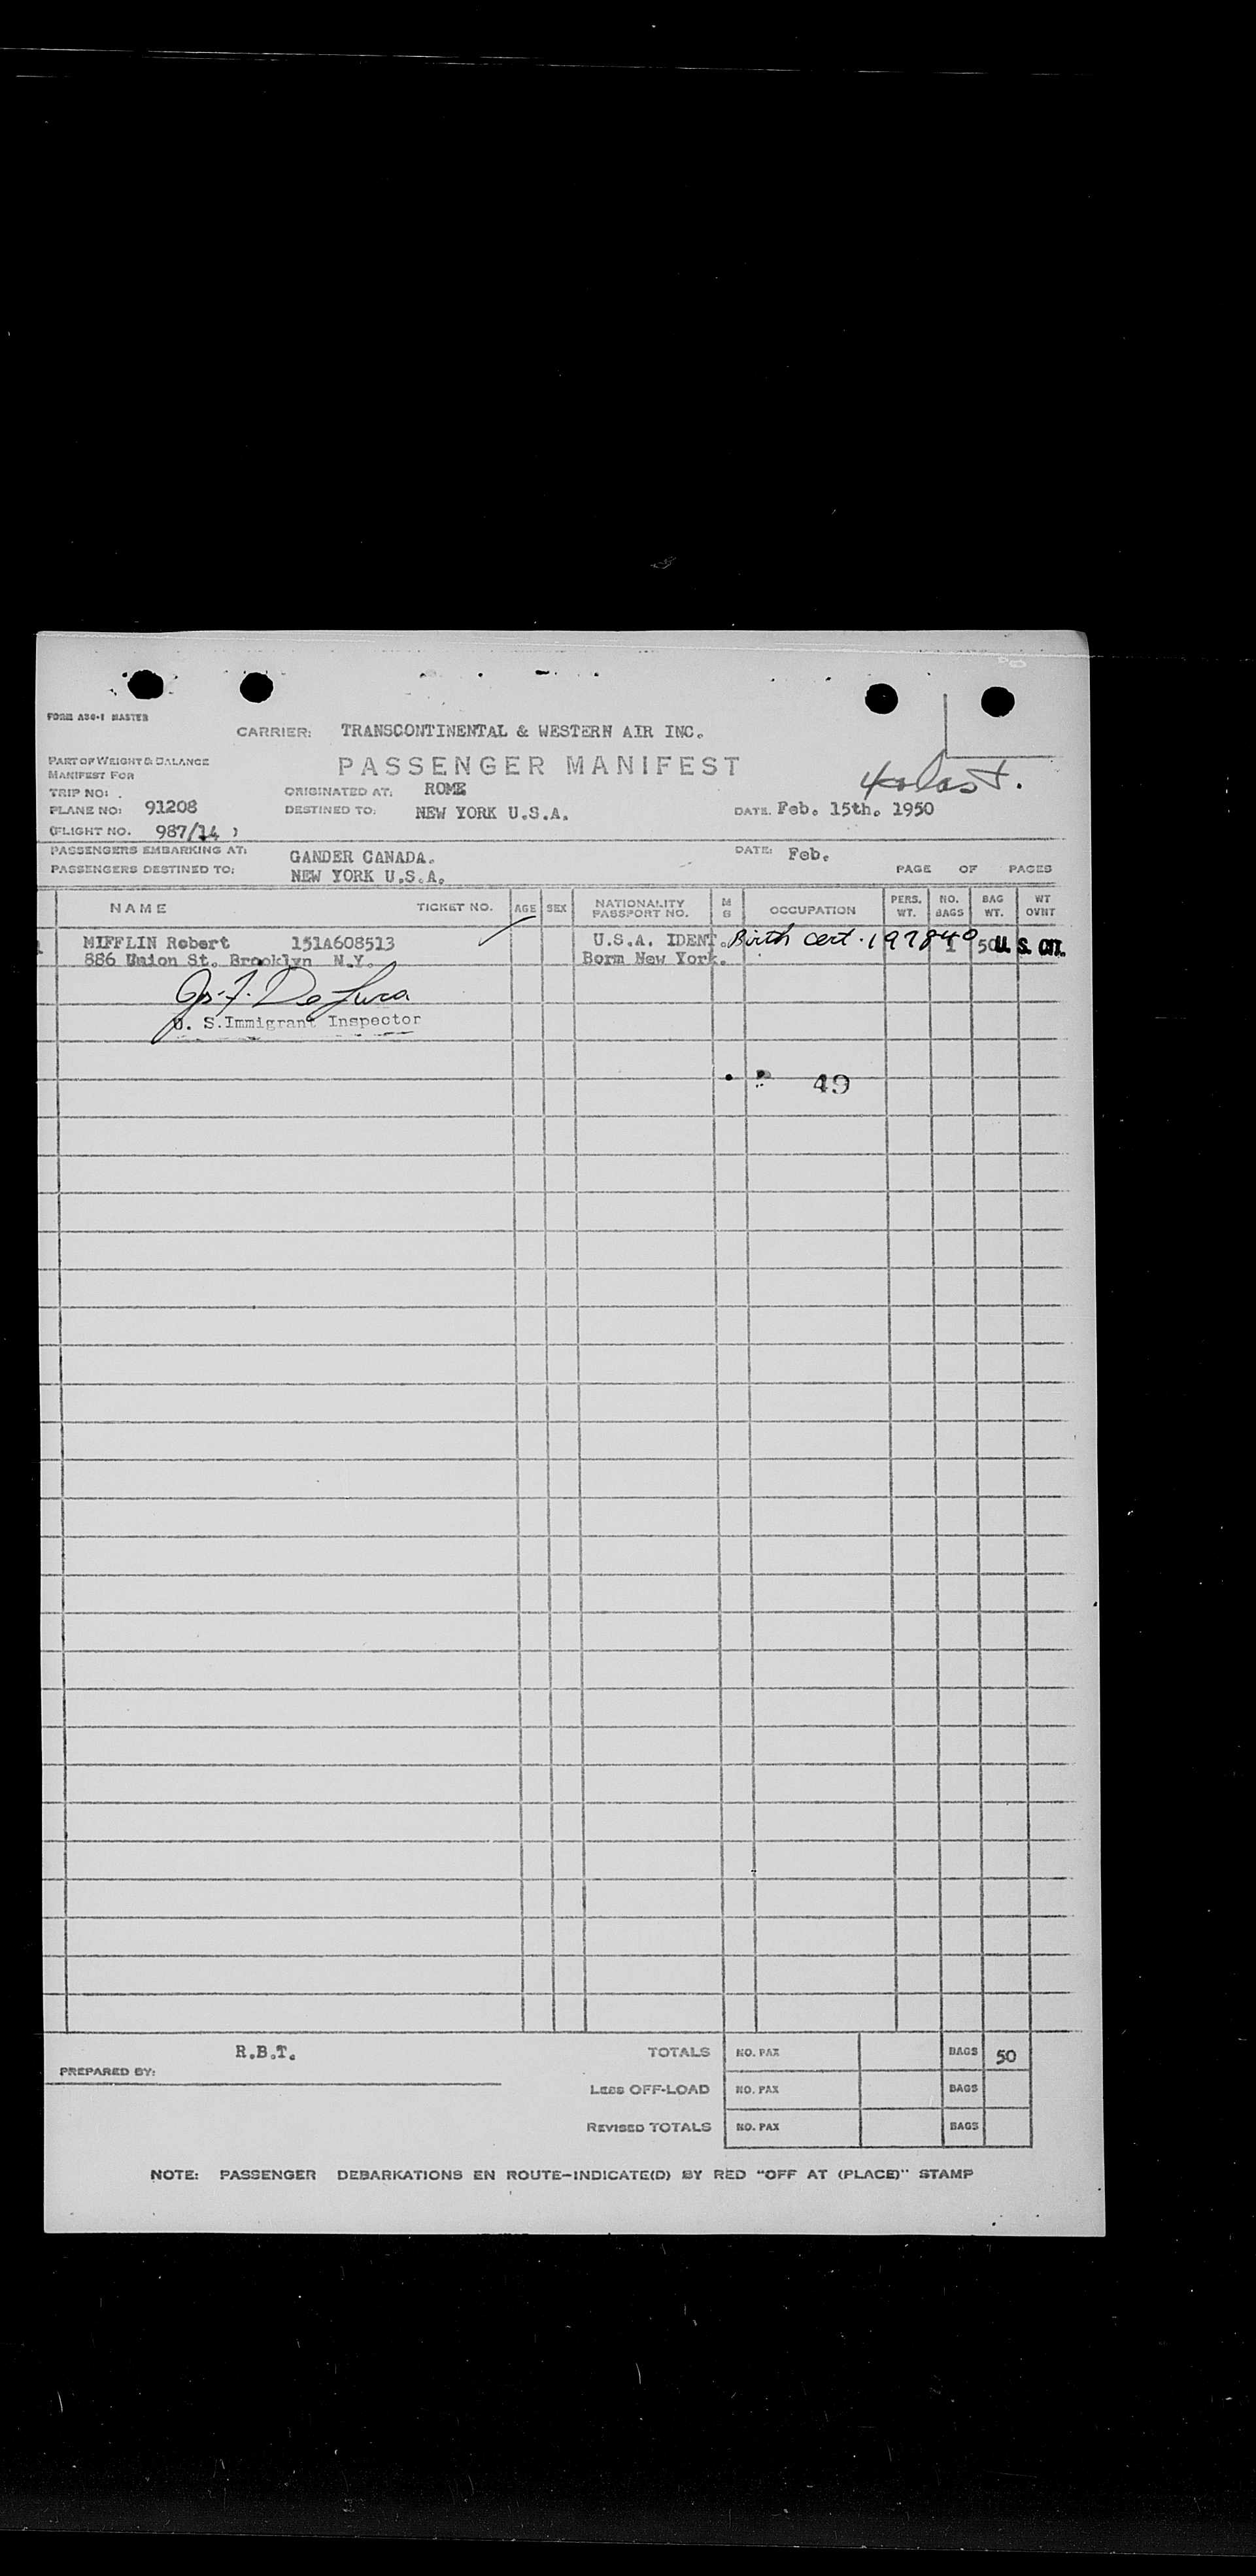 FORM A36-1 MASTER
CARRIER: TRANSCONTINENTAL & WESTERN AIR INC.
PART OF WEIGHT & BALANCE
MANIFEST FOR
PASSENGER MANIFEST
TRIP NO: .
ORIGINATED AT: ROME
PLANE NO: 91208
DESTINED TO: NEW YORK U.S.A.
DATE. Feb. 15th. 1950
(FLIGHT NO. 987/14 )
PASSENGERS EMBARKING AT: GANDER CANADA.
DATE: Feb.
PASSENGERS DESTINED TO: NEW YORK U.S.A.
PAGE OF PAGES
NAME TICKET NO. AGE SEX NATIONALITY PASSPORT NO. M S OCCUPATION PERS. WT. NO. BAGS BAG WT. WT OVHT
MIFFLIN Robert 151A608513 U.S.A. IDENT. Birth cert. 197840 1 50 U. S. CIT.
886 Union St. Brooklyn N.Y. Born New York.
Jos. F. De Luca
U. S. Immigrant Inspector
49
R.B.T.
PREPARED BY:
TOTALS NO. PAX BAGS 50
LESS OFF-LOAD NO. PAX BAGS
REVISED TOTALS NO. PAX BAGS
NOTE: PASSENGER DEBARKATIONS EN ROUTE-INDICATE(D) BY RED "OFF AT (PLACE)" STAMP